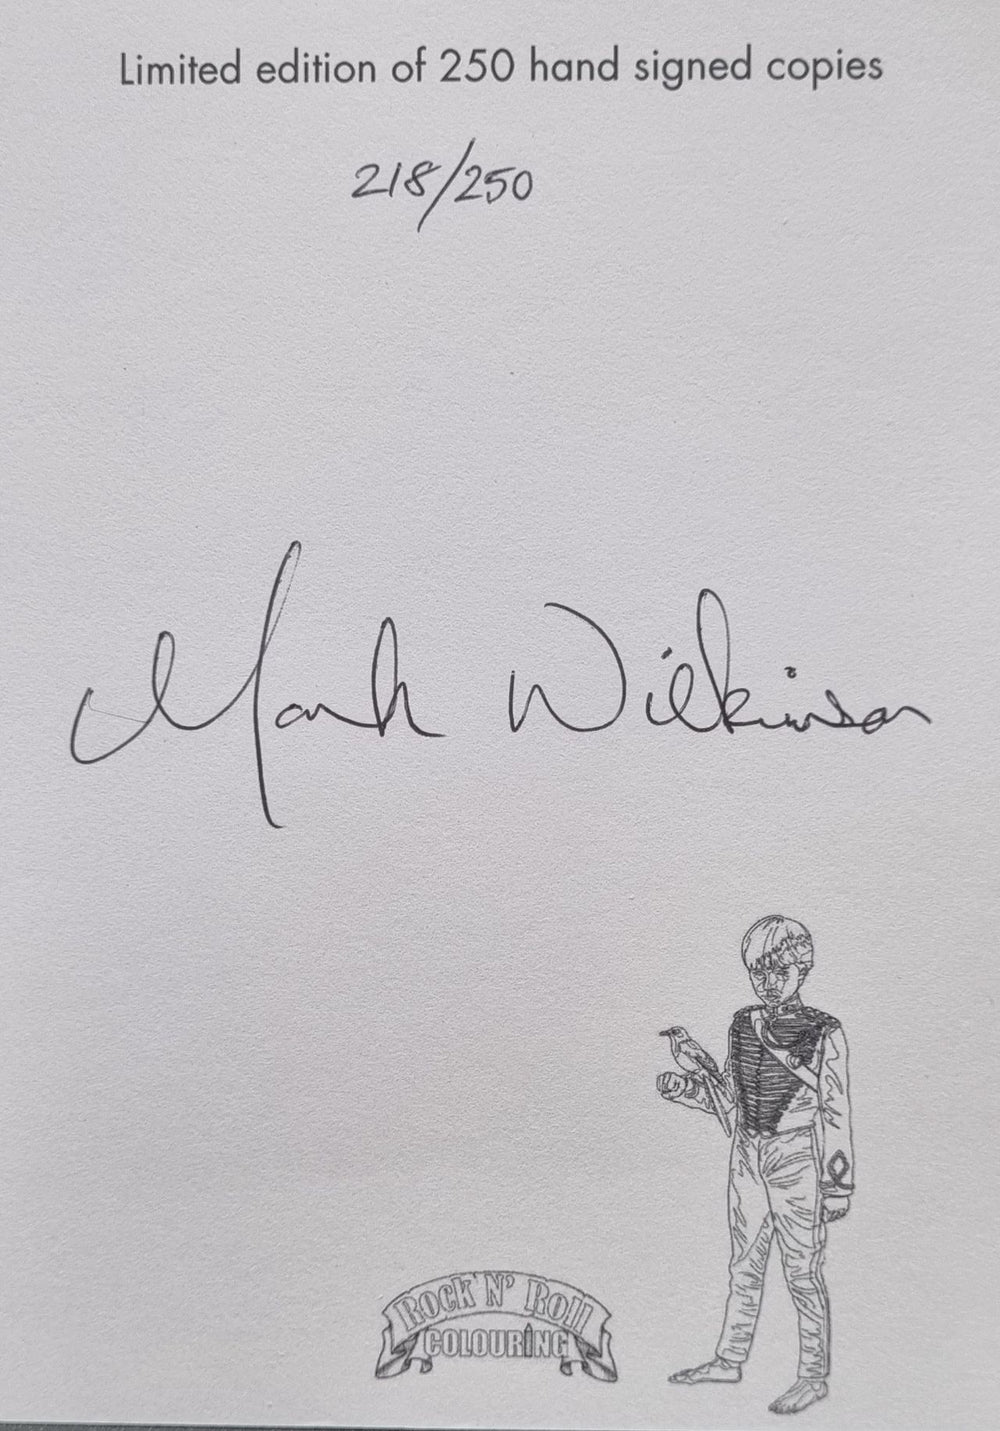 Limited edition of 250 hand signed copies
218/250
Mark Wilkinson
ROCK N' ROLL
COLOURING